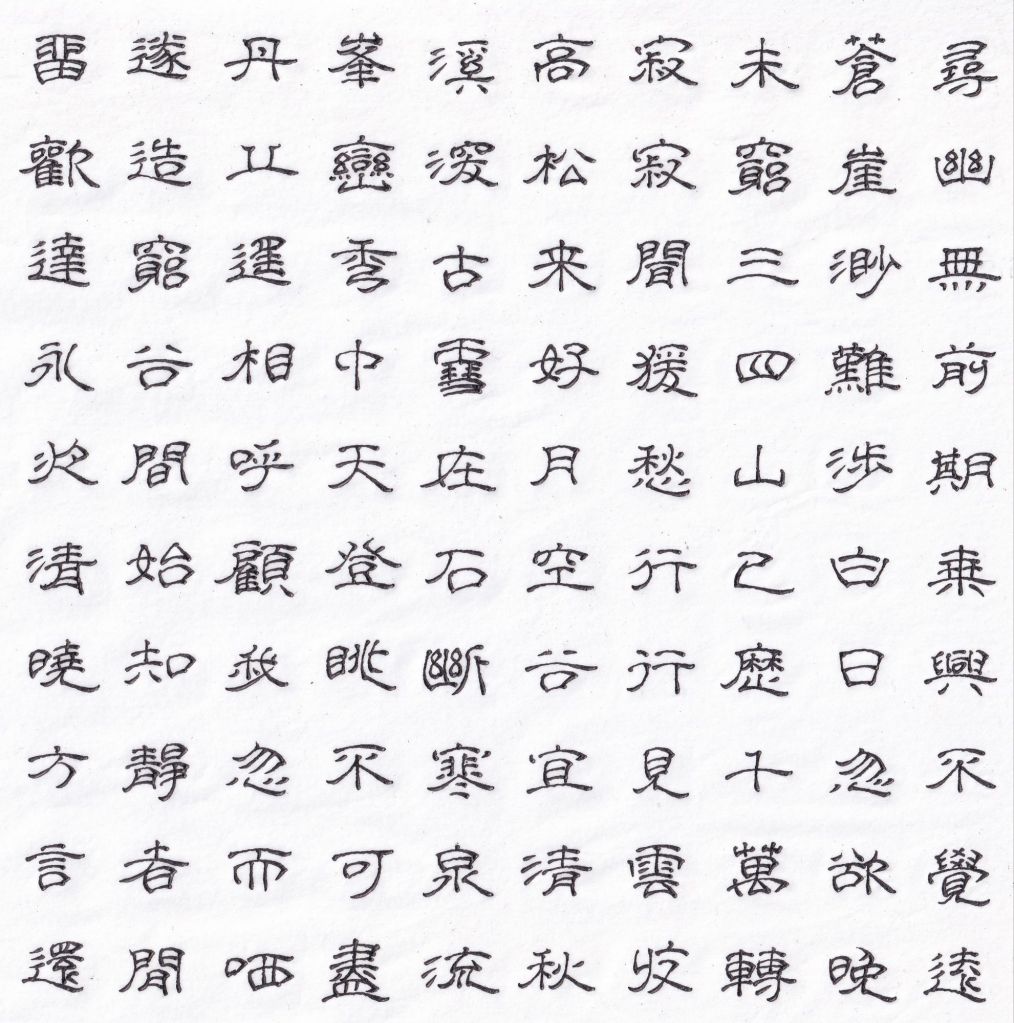 尋幽無前期乗興不覺遠
蒼崖渺難涉白日忽欲晚
未窮三四山已歷千萬轉
寂寂聞猨愁行行見雲收
高松来好月空谷宜清秋
溪深古雪在石斷寒泉流
峯巒秀中天登眺不可盡
丹丘遥相呼顧我忽而哂
遂造窮谷間始知靜者閒
畱歡達永夜清曉方言還